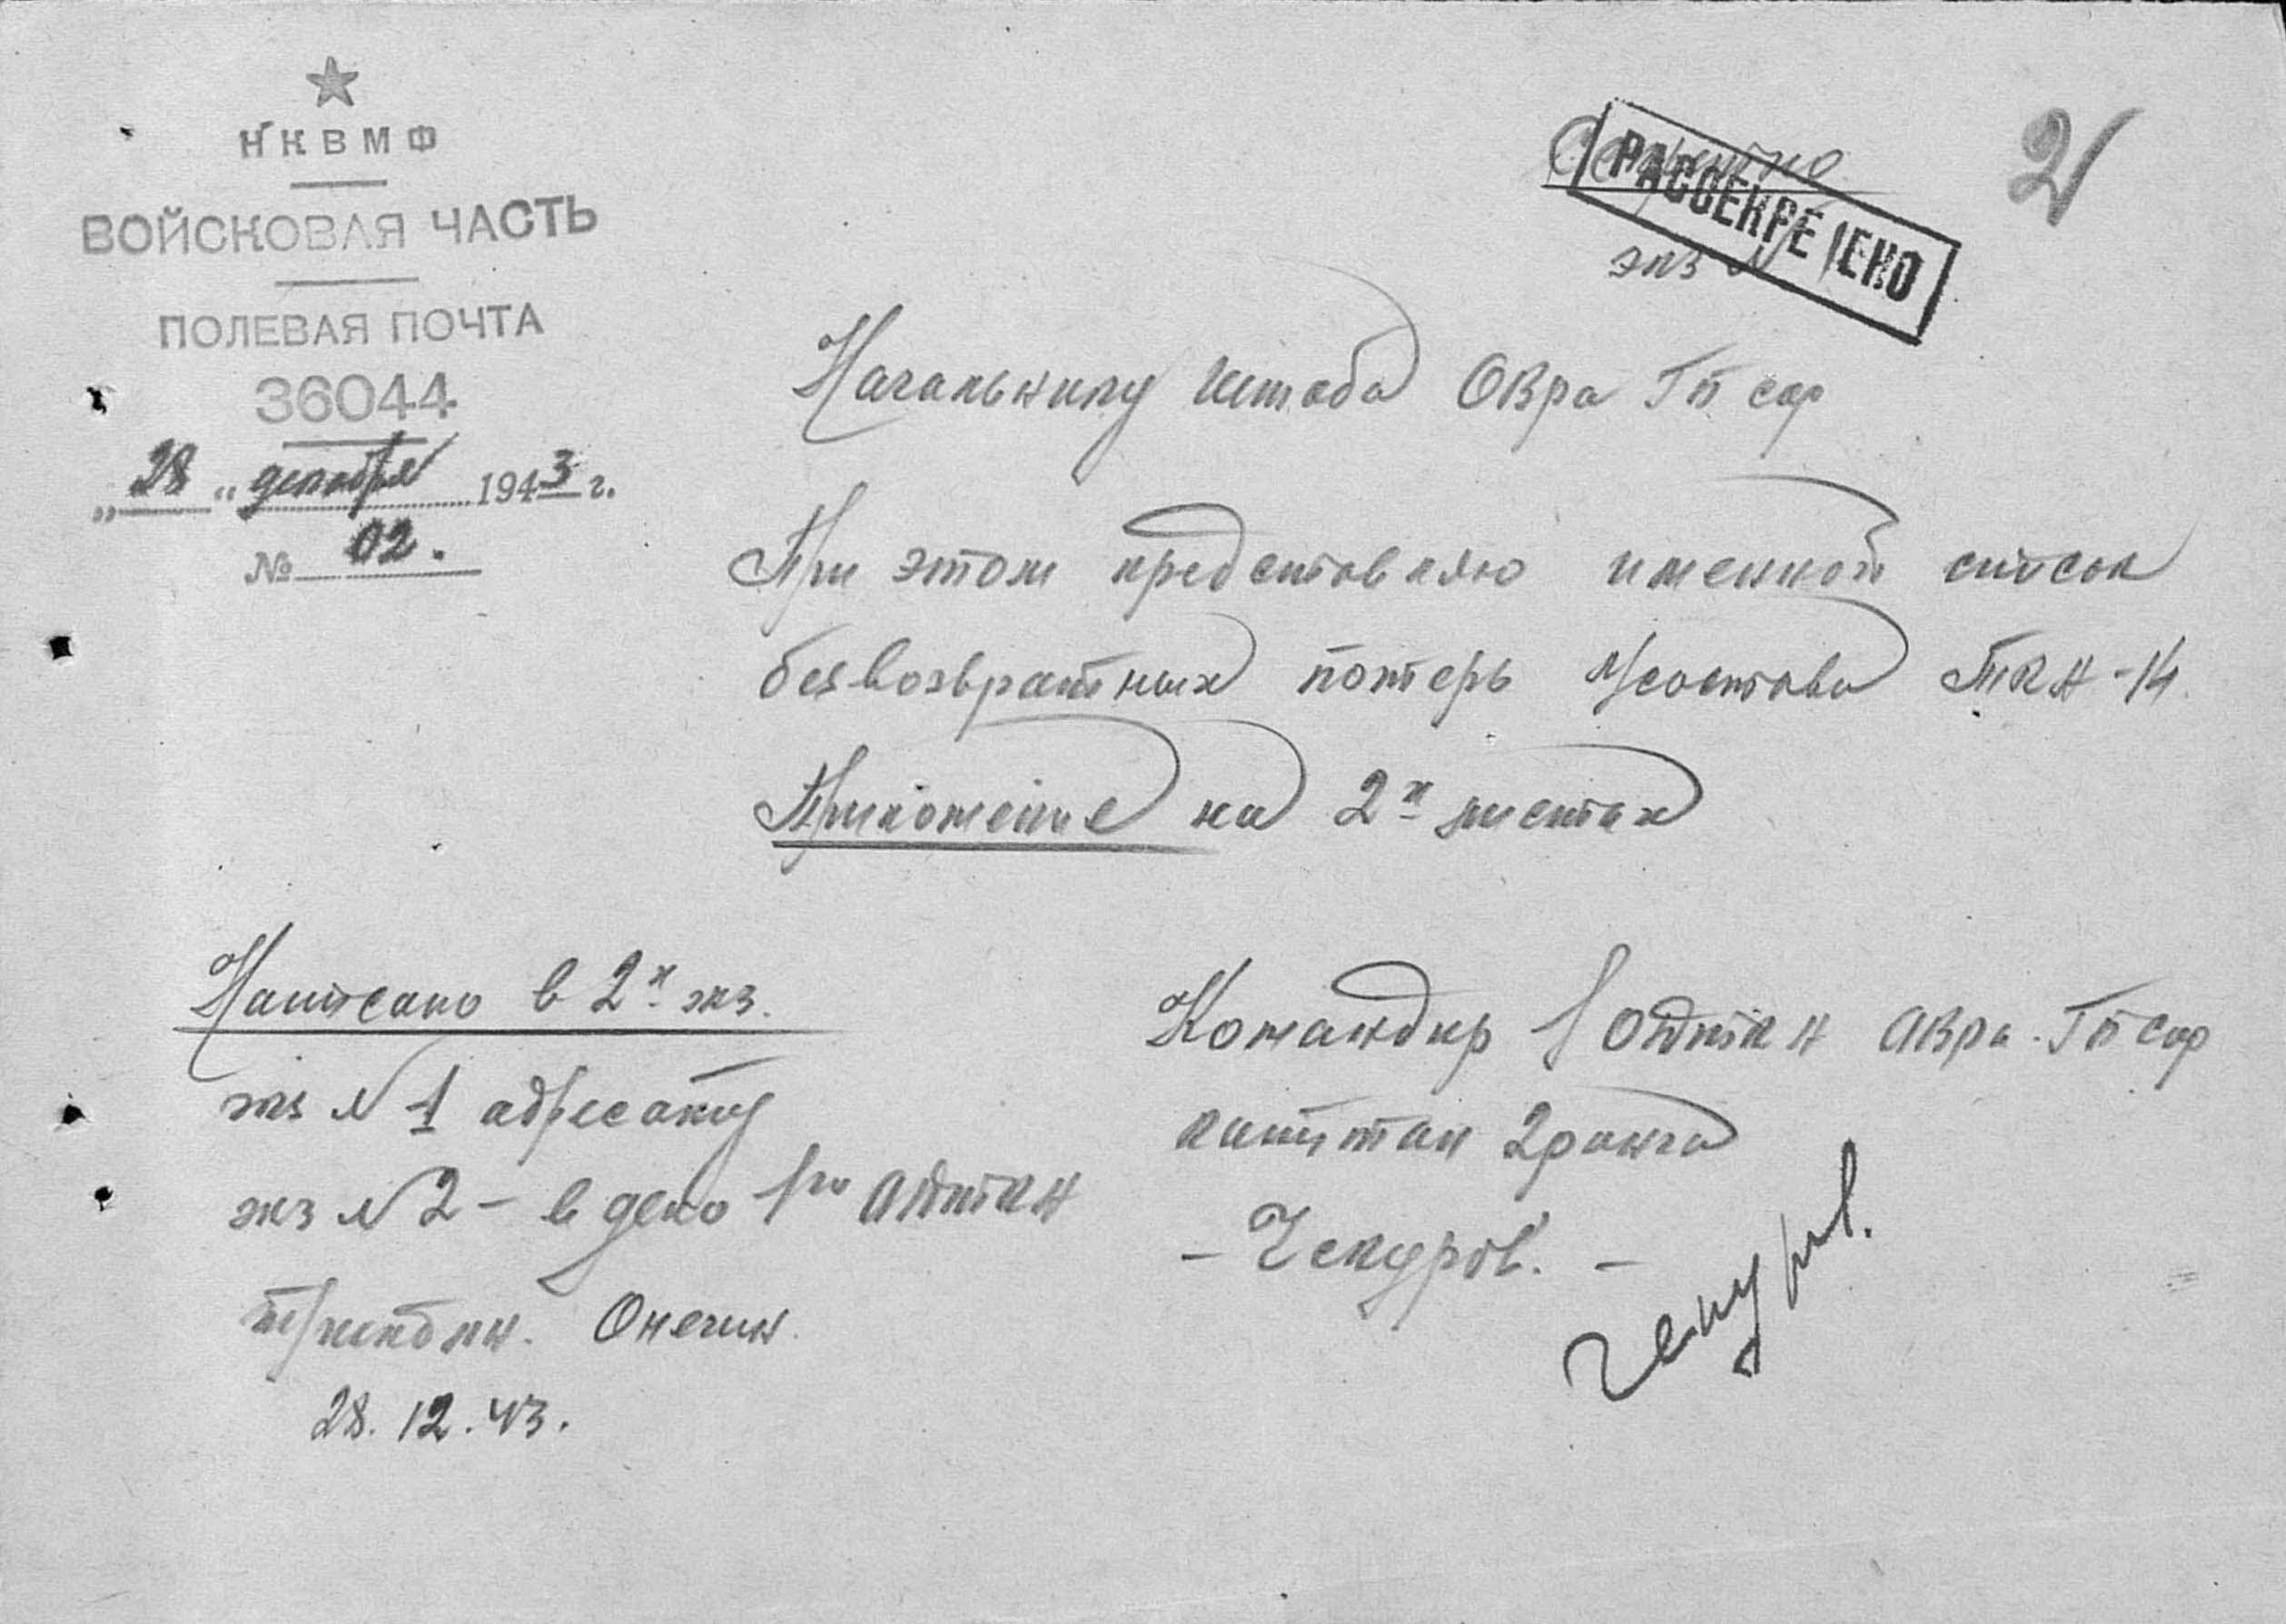 НКВМФ
ВОЙСКОВАЯ ЧАСТЬ
ПОЛЕВАЯ ПОЧТА
36044
„28“ декабря 1943 г.
№ 02.
Секретно
РАССЕКРЕЧЕНО
экз №
2
Начальнику штаба ОВРа ГП сор
При этом представляю именной список
безвозвратных потерь ТКА-14.
Приложение на 2х листах
Написано в 2х экз.
экз №1 адресату
экз №2 – в дело 1го ОДТКА
Онегин
28.12.43.
Командир 1 ОДТКА ОВРа ГП сор
капитан 2 ранга
– Чекуров. –
Чекуров.